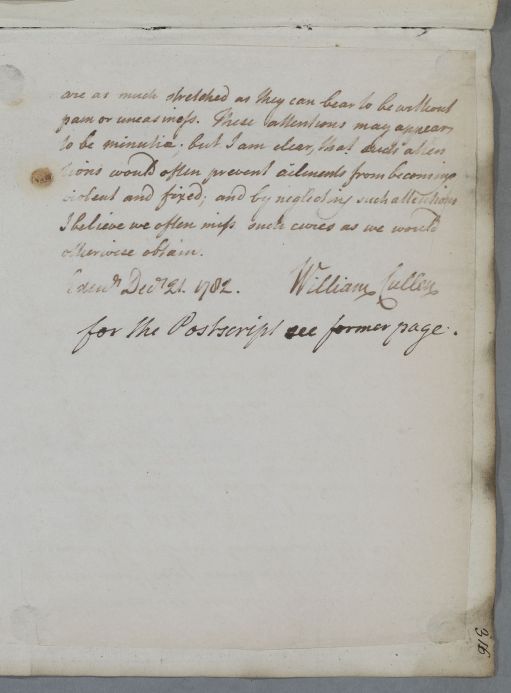 are as much stretched as they can bear to be without
pain or uneasiness. These attentions may appear
to be minutia, but I am clear, that such atten
tions would often prevent ailments from becoming
violent and fixed; and by neglecting such attentions
I believe we often miss such cures as we would
otherwise obtain.
Edenr. Decr. 21. 1782. William Cullen
for the Postscript see former page.
316